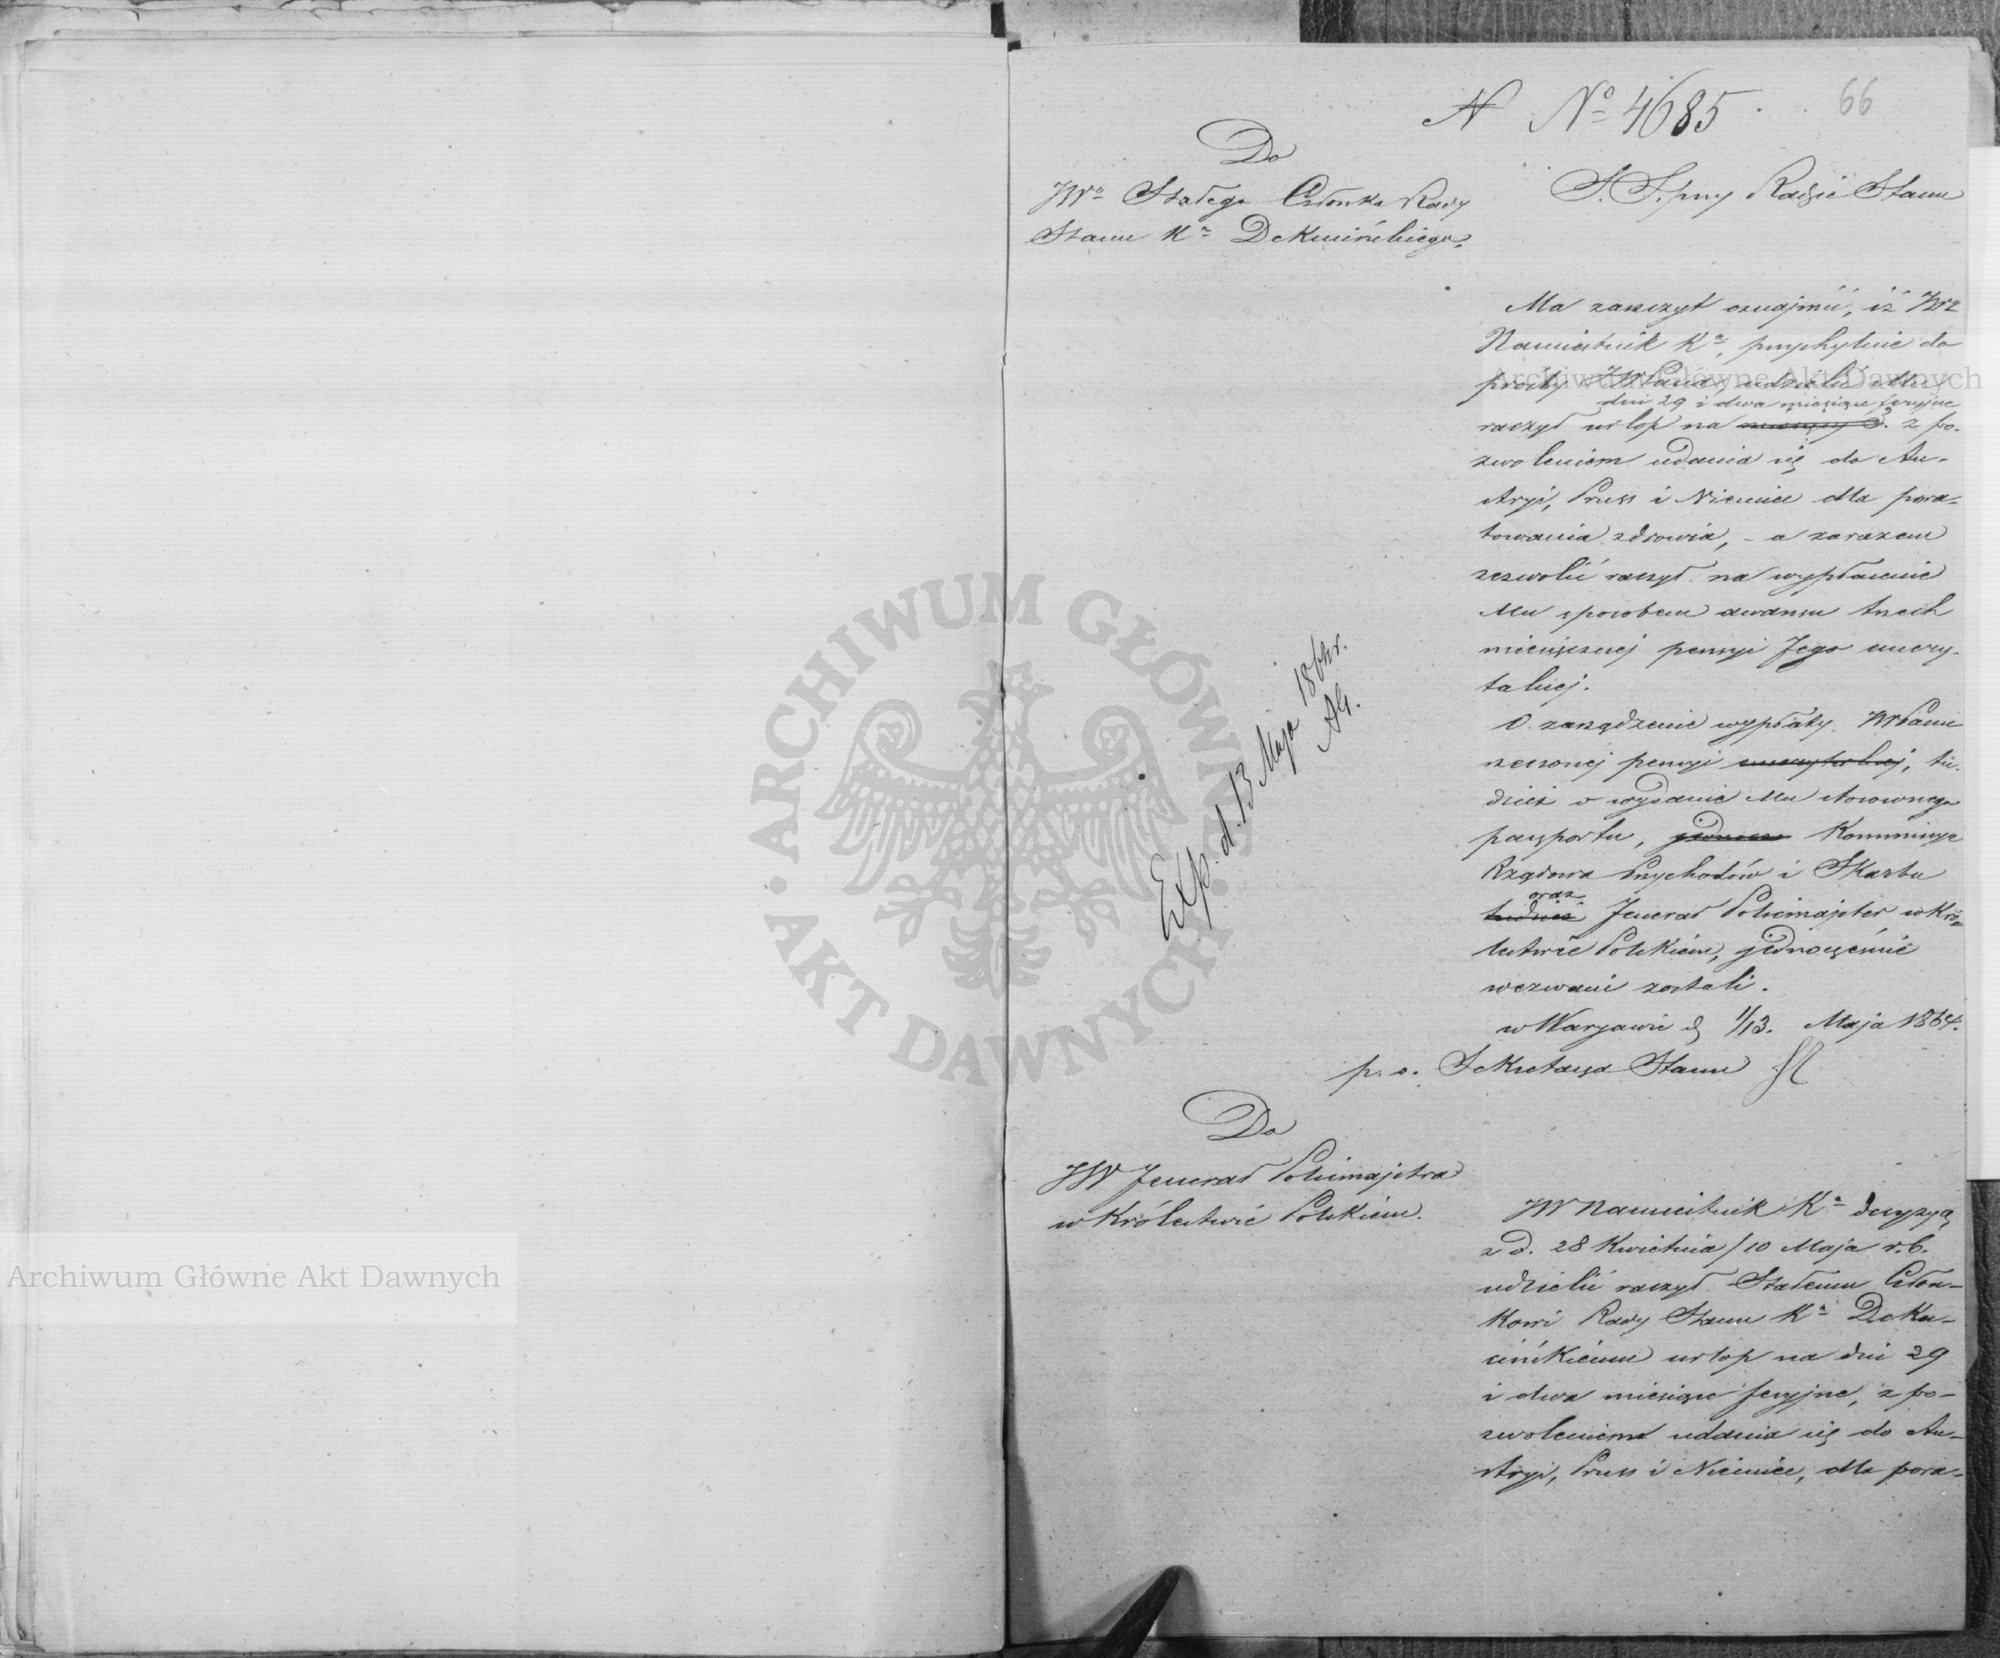 N Nº 4685.
66
Do
JWº Stałego Członka Rady
Stanu Kª Dekucińskiego.
S. S. przy Radzie Stanu
Ma zaszczyt oznajmić, iż JW
Namiestnik Kª, przychylnie do
prośby JWPana, udzielić Mu
dni 29 i dwa miesiące feryjne
raczył urlop na z po-
zwoleniem udania się do Au-
stryi, Pruss i Niemiec dla pora-
towania zdrowia, - a zarazem
zezwolić raczył na wypłacenie
Mu sposobem awansu trzech
miesięcznej pensyi Jego emery-
talnej.
O zarządzenie wypłaty JWPanu
rzeczonej pensyi emerytalnej, tu-
dzież o wydanie Mu stosownego
paszportu, Kommissya
Rządowa Przychodów i Skarbu
oraz
tudzież Jenerał Policmajster w Kró-
lestwie Polskiem, jednocześnie
wezwani zostali.
w Warszawie d. 1/13. Maja 1864.
p. o. Sekretarza Stanu
Exp. d. 13 Maja 1864r.
Do
JW Jenerał Policmajstra
w Królestwie Polskiem.
JW Namiestnik Kª decyzyą
z d. 28 Kwietnia/10 Maja r. b.
udzielić raczył Stałemu Człon-
kowi Rady Stanu Kª Deku-
cińskiemu urlop na dni 29
i dwa miesiące feryjne, z po-
zwoleniem udania się do Au-
stryi, Pruss i Niemiec, dla pora-
Archiwum Główne Akt Dawnych
Archiwum Główne Akt Dawnych
ARCHIWUM GŁÓWNE · AKT DAWNYCH ·